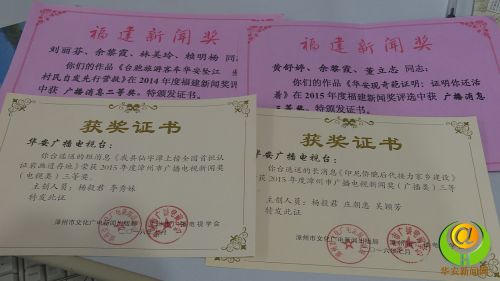 福建新闻奖
刘丽芬、余黎霞、林美玲、赖明杨 同志:
你们的作品《台胞旅游客车华安坠江
村民自发先行营救》在2014年度福建新闻奖评选
中获 广播消息二等奖。特颁发证书。
福建新闻奖
黄舒婷、余黎霞、董立志 同志:
你们的作品《华安现奇葩证明：证明你还活
着》在2015年度福建新闻奖评选中获 广播消息
三等奖。特颁发证书。
获奖证书
华安广播电视台:
你台选送的短消息《我县仙字潭上榜全国首批认
证岩画遗存地》荣获2015年度漳州市广播电视新闻奖
(电视类)三等奖。
主创人员: 杨毅君 李秀妹
特发此证
漳州市文化广电新闻出版局
获奖证书
华安广播电视台:
你台选送的长消息《印尼侨胞后代接力家乡建设》
获2015年度漳州市广播电视新闻奖(广播类)三等
主创人员: 杨毅君 庄朝惠 吴颖芳
特发此证
漳州市文化广电新闻出版局
@
华安新闻网